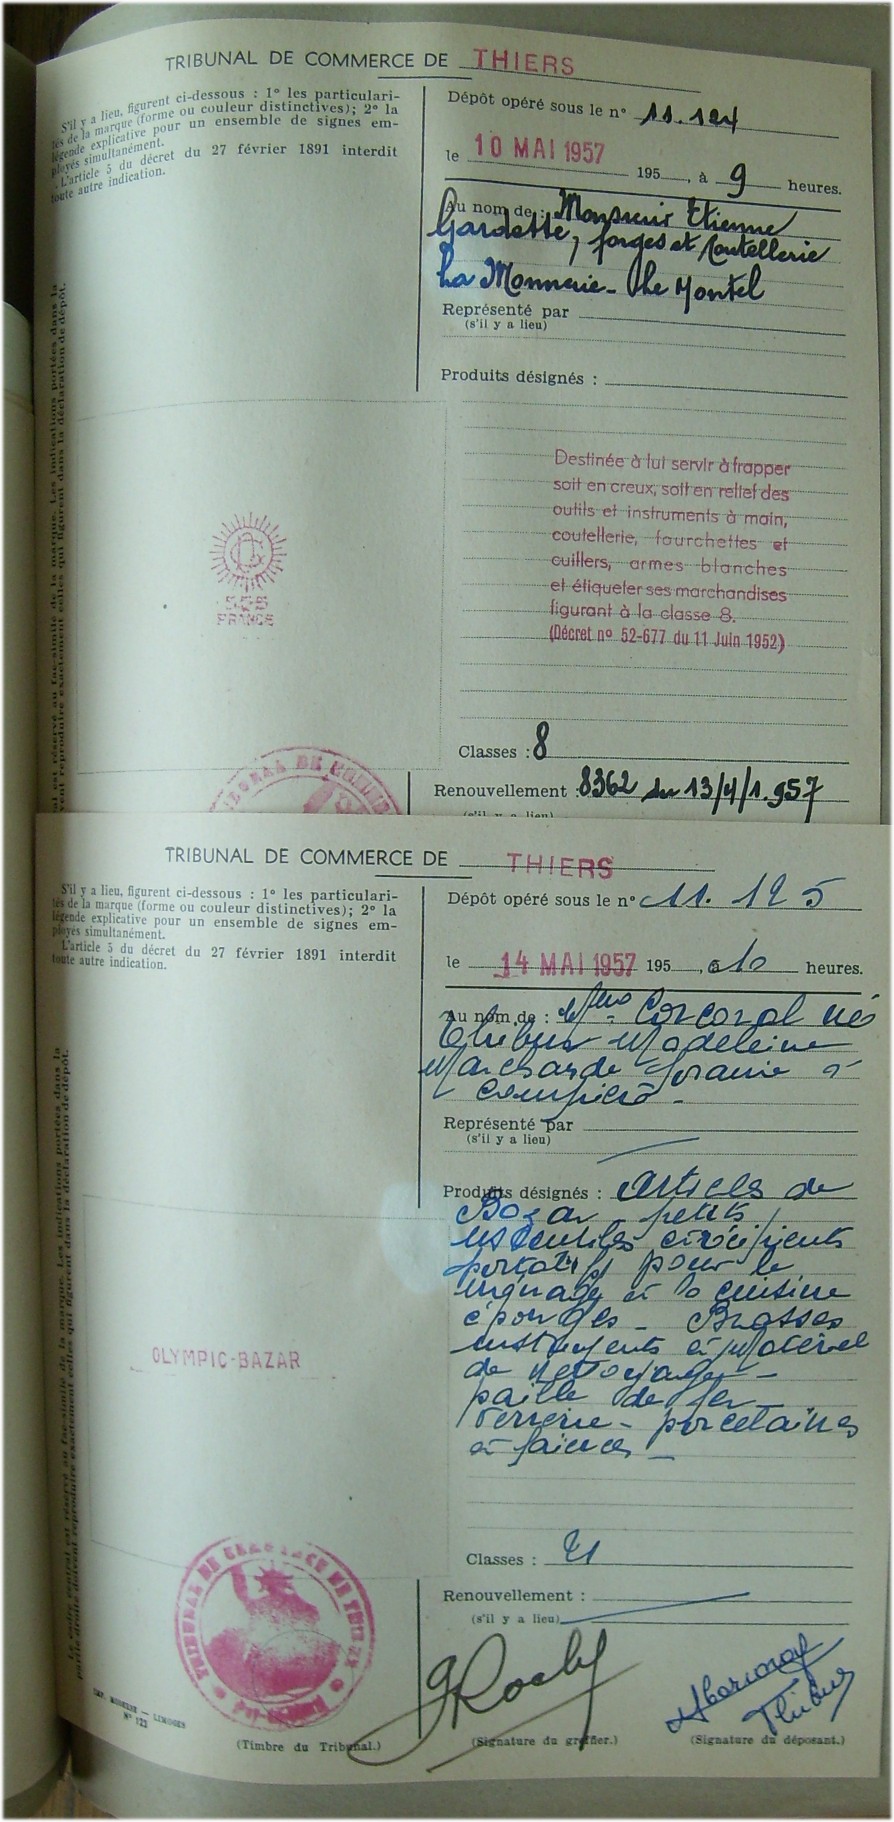 TRIBUNAL DE COMMERCE DE THIERS
S'il y a lieu, figurent ci-dessous : 1° les particulari-
tés de la marque (forme ou couleur distinctives); 2° la
légende explicative pour un ensemble de signes em-
ployés simultanément.
L'article 5 du décret du 27 février 1891 interdit
toute autre indication.
Dépôt opéré sous le n° 11.124
le 10 MAI 1957 195 , à 9 heures.
Au nom de : Monsieur Etienne
Gardette, forges et Coutellerie
La Monnerie - Le Montel
Représenté par
(s'il y a lieu)
Produits désignés :
Destinée à lui servir à frapper
soit en creux, soit en relief des
outils et instruments à main,
coutellerie, fourchettes et
cuillers, armes blanches
et étiqueter ses marchandises
figurant à la classe 8.
(Décret n° 52-677 du 11 Juin 1952)
FRANCE
Classes : 8
Renouvellement : 8362 du 13/4/1.957
(s'il y a lieu)
TRIBUNAL DE COMMERCE DE THIERS
S'il y a lieu, figurent ci-dessous : 1° les particulari-
tés de la marque (forme ou couleur distinctives); 2° la
légende explicative pour un ensemble de signes em-
ployés simultanément.
L'article 5 du décret du 27 février 1891 interdit
toute autre indication.
Dépôt opéré sous le n° 11.125
le 14 MAI 1957 195 , à 10 heures.
Au nom de : Mme née
Madeleine
Marchande foraine à
Représenté par
(s'il y a lieu)
Produits désignés : Articles de
Bazar petits
ustensiles et récipients
portatifs pour le
ménage et la cuisine
éponges - Brosses
instruments et matériel
de nettoyage -
paille de fer -
verrerie - porcelaines
et faiences -
OLYMPIC-BAZAR
Classes : 21
Renouvellement :
(s'il y a lieu)
TRIBUNAL DE COMMERCE DE THIERS
Le cadre central est réservé au fac-similé de la marque. Les indications portées dans la
partie droite doivent reproduire exactement celles qui figurent dans la déclaration de dépôt.
IMP. MODERNE — LIMOGES
N° 123
(Timbre du Tribunal.)
(Signature du greffier.)
(Signature du déposant.)